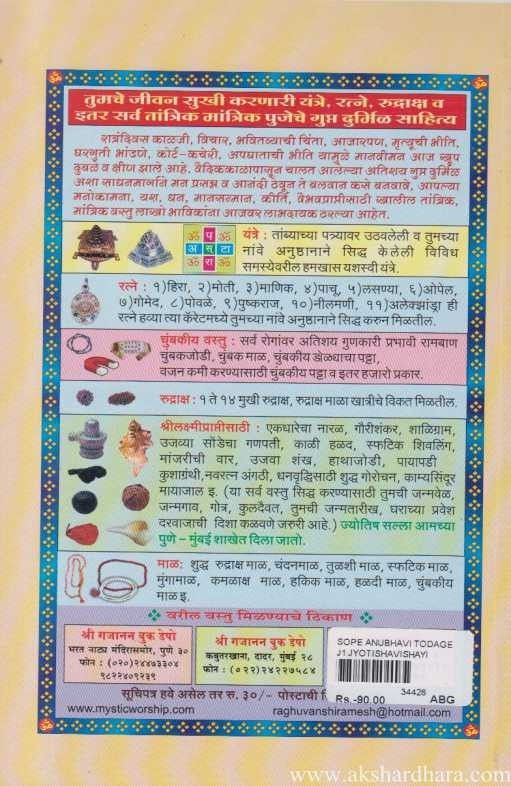 तुमचे जीवन सुखी करणारी यंत्रे, रत्ने, रुद्राक्ष व
इतर सर्व तांत्रिक मांत्रिक पुजेचे गुप्त दुर्मिळ साहित्य
रात्रंदिवस काळजी, विचार, भवितव्याची चिंता, आजारपण, मृत्यूची भीति,
घरगुती भांडणे, कोर्ट-कचेरी, अपघाताची भीति यामुळे मानवीमन आज खुप
दुबळे व क्षीण झाले आहे. वैदिककाळापासून चालत आलेल्या अतिशय गुप्त दुर्मिळ
अशा साधनमार्गाने मन प्रसन्न व आनंदी ठेवून ते बलवान कसे बनवावे, आपल्या
मनोकामना, यश, धन, मानसन्मान, कीर्ति, वैभवप्राप्तीसाठी खालील तांत्रिक,
मांत्रिक वस्तु लाखो भाविकांना आजवर लाभदायक ठरल्या आहेत.
ॐ प ॐ
अ स् टा
ॐ रा ॐ
यंत्रे : तांब्याच्या पत्र्यावर उठवलेली व तुमच्या
नांवे अनुष्ठानाने सिद्ध केलेली विविध
समस्येवरील हमखास यशस्वी यंत्रे.
रत्ने : १)हिरा, २)मोती, ३)माणिक, ४)पाचू, ५)लसण्या, ६)ओपेल,
७)गोमेद, ८)पोवळे, ९)पुष्कराज, १०)नीलमणी, ११)अलेक्झांड्रा ही
रत्ने हव्या त्या कॅरेटमध्ये तुमच्या नांवे अनुष्ठानाने सिद्ध करुन मिळतील.
चुंबकीय वस्तु : सर्व रोगांवर अतिशय गुणकारी प्रभावी रामबाण
चुंबकजोडी, चुंबक माळ, चुंबकीय डोळ्याचा पट्टा,
वजन कमी करण्यासाठी चुंबकीय पट्टा व इतर हजारो प्रकार.
रुद्राक्ष : १ ते १४ मुखी रुद्राक्ष, रुद्राक्ष माळा खात्रीचे विकत मिळतील.
श्रीलक्ष्मीप्राप्तीसाठी : एकधारेचा नारळ, गौरीशंकर, शाळिग्राम,
उजव्या सोंडेचा गणपती, काळी हळद, स्फटिक शिवलिंग,
मांजरीची वार, उजवा शंख, हाथाजोडी, पायापडी
कुशाग्रंथी,नवरत्न अंगठी, धनवृद्धिसाठी शुद्ध गोरोचन, काम्यसिंदूर
मायाजाल इ. (या सर्व वस्तु सिद्ध करण्यासाठी तुमची जन्मवेळ,
जन्मगाव, गोत्र, कुलदैवत, तुमची जन्मतारीख, घराच्या प्रवेश
दरवाजाची दिशा कळवणे जरुरी आहे.) ज्योतिष सल्ला आमच्या
पुणे – मुंबई शाखेत दिला जातो.
माळ: शुद्ध रुद्राक्ष माळ, चंदनमाळ, तुळशी माळ, स्फटिक माळ,
मुंगामाळ, कमळाक्ष माळ, हकिक माळ, हळदी माळ, चुंबकीय
माळ इ.
वरील वस्तु मिळण्याचे ठिकाण
श्री गजानन बुक डेपो
भरत नाट्य मंदिरासमोर, पुणे ३०
फोन : (०२०)२४४७३३०४
९८२२४०९२३९
श्री गजानन बुक डेपो
कबुतरखाना, दादर, मुंबई २८
फोन : (०२२)२४२२७५८४
SOPE ANUBHAVI TODAGE
J1JYOTISHAVISHAYI
34428
Rs.-90.00 ABG
सूचिपत्र हवे असेल तर रु. ३०/- पोस्टाची
www.mysticworship.com raghuvanshiramesh@hotmail.com
www.akshardhara.com